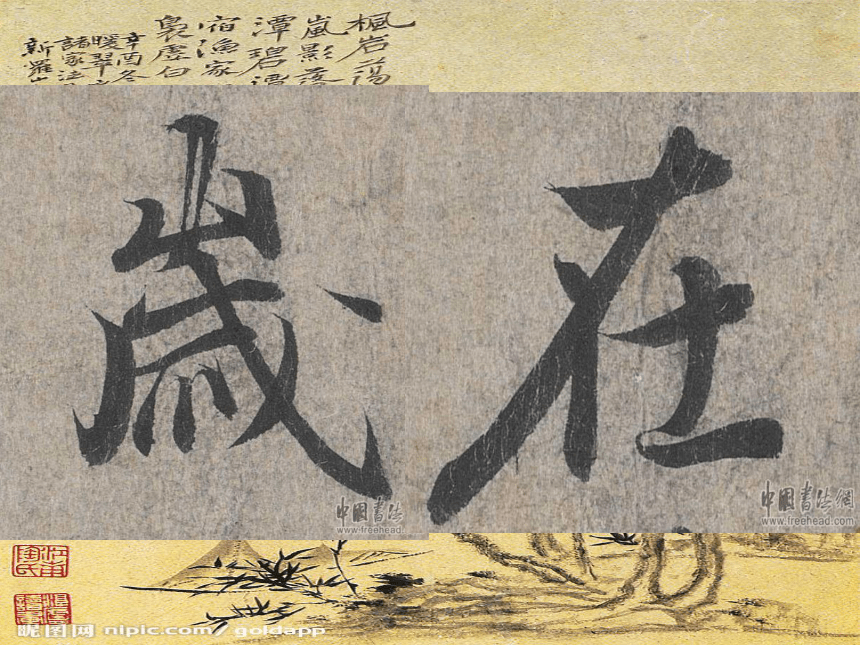 楓岩蕩
嵐影落
潭碧
宿漁家
裊虛白
辛酉冬
暖翠
諸家法
新羅山
歲在
中國書法
www.freehead.com
中國書法網
www.freehead.com
昵图网 nipic.com/ goldapp